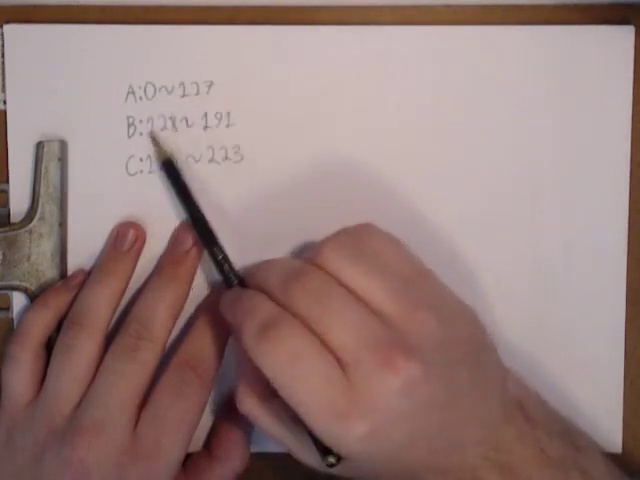 A:0~127
B:128~191
C:1 ~223